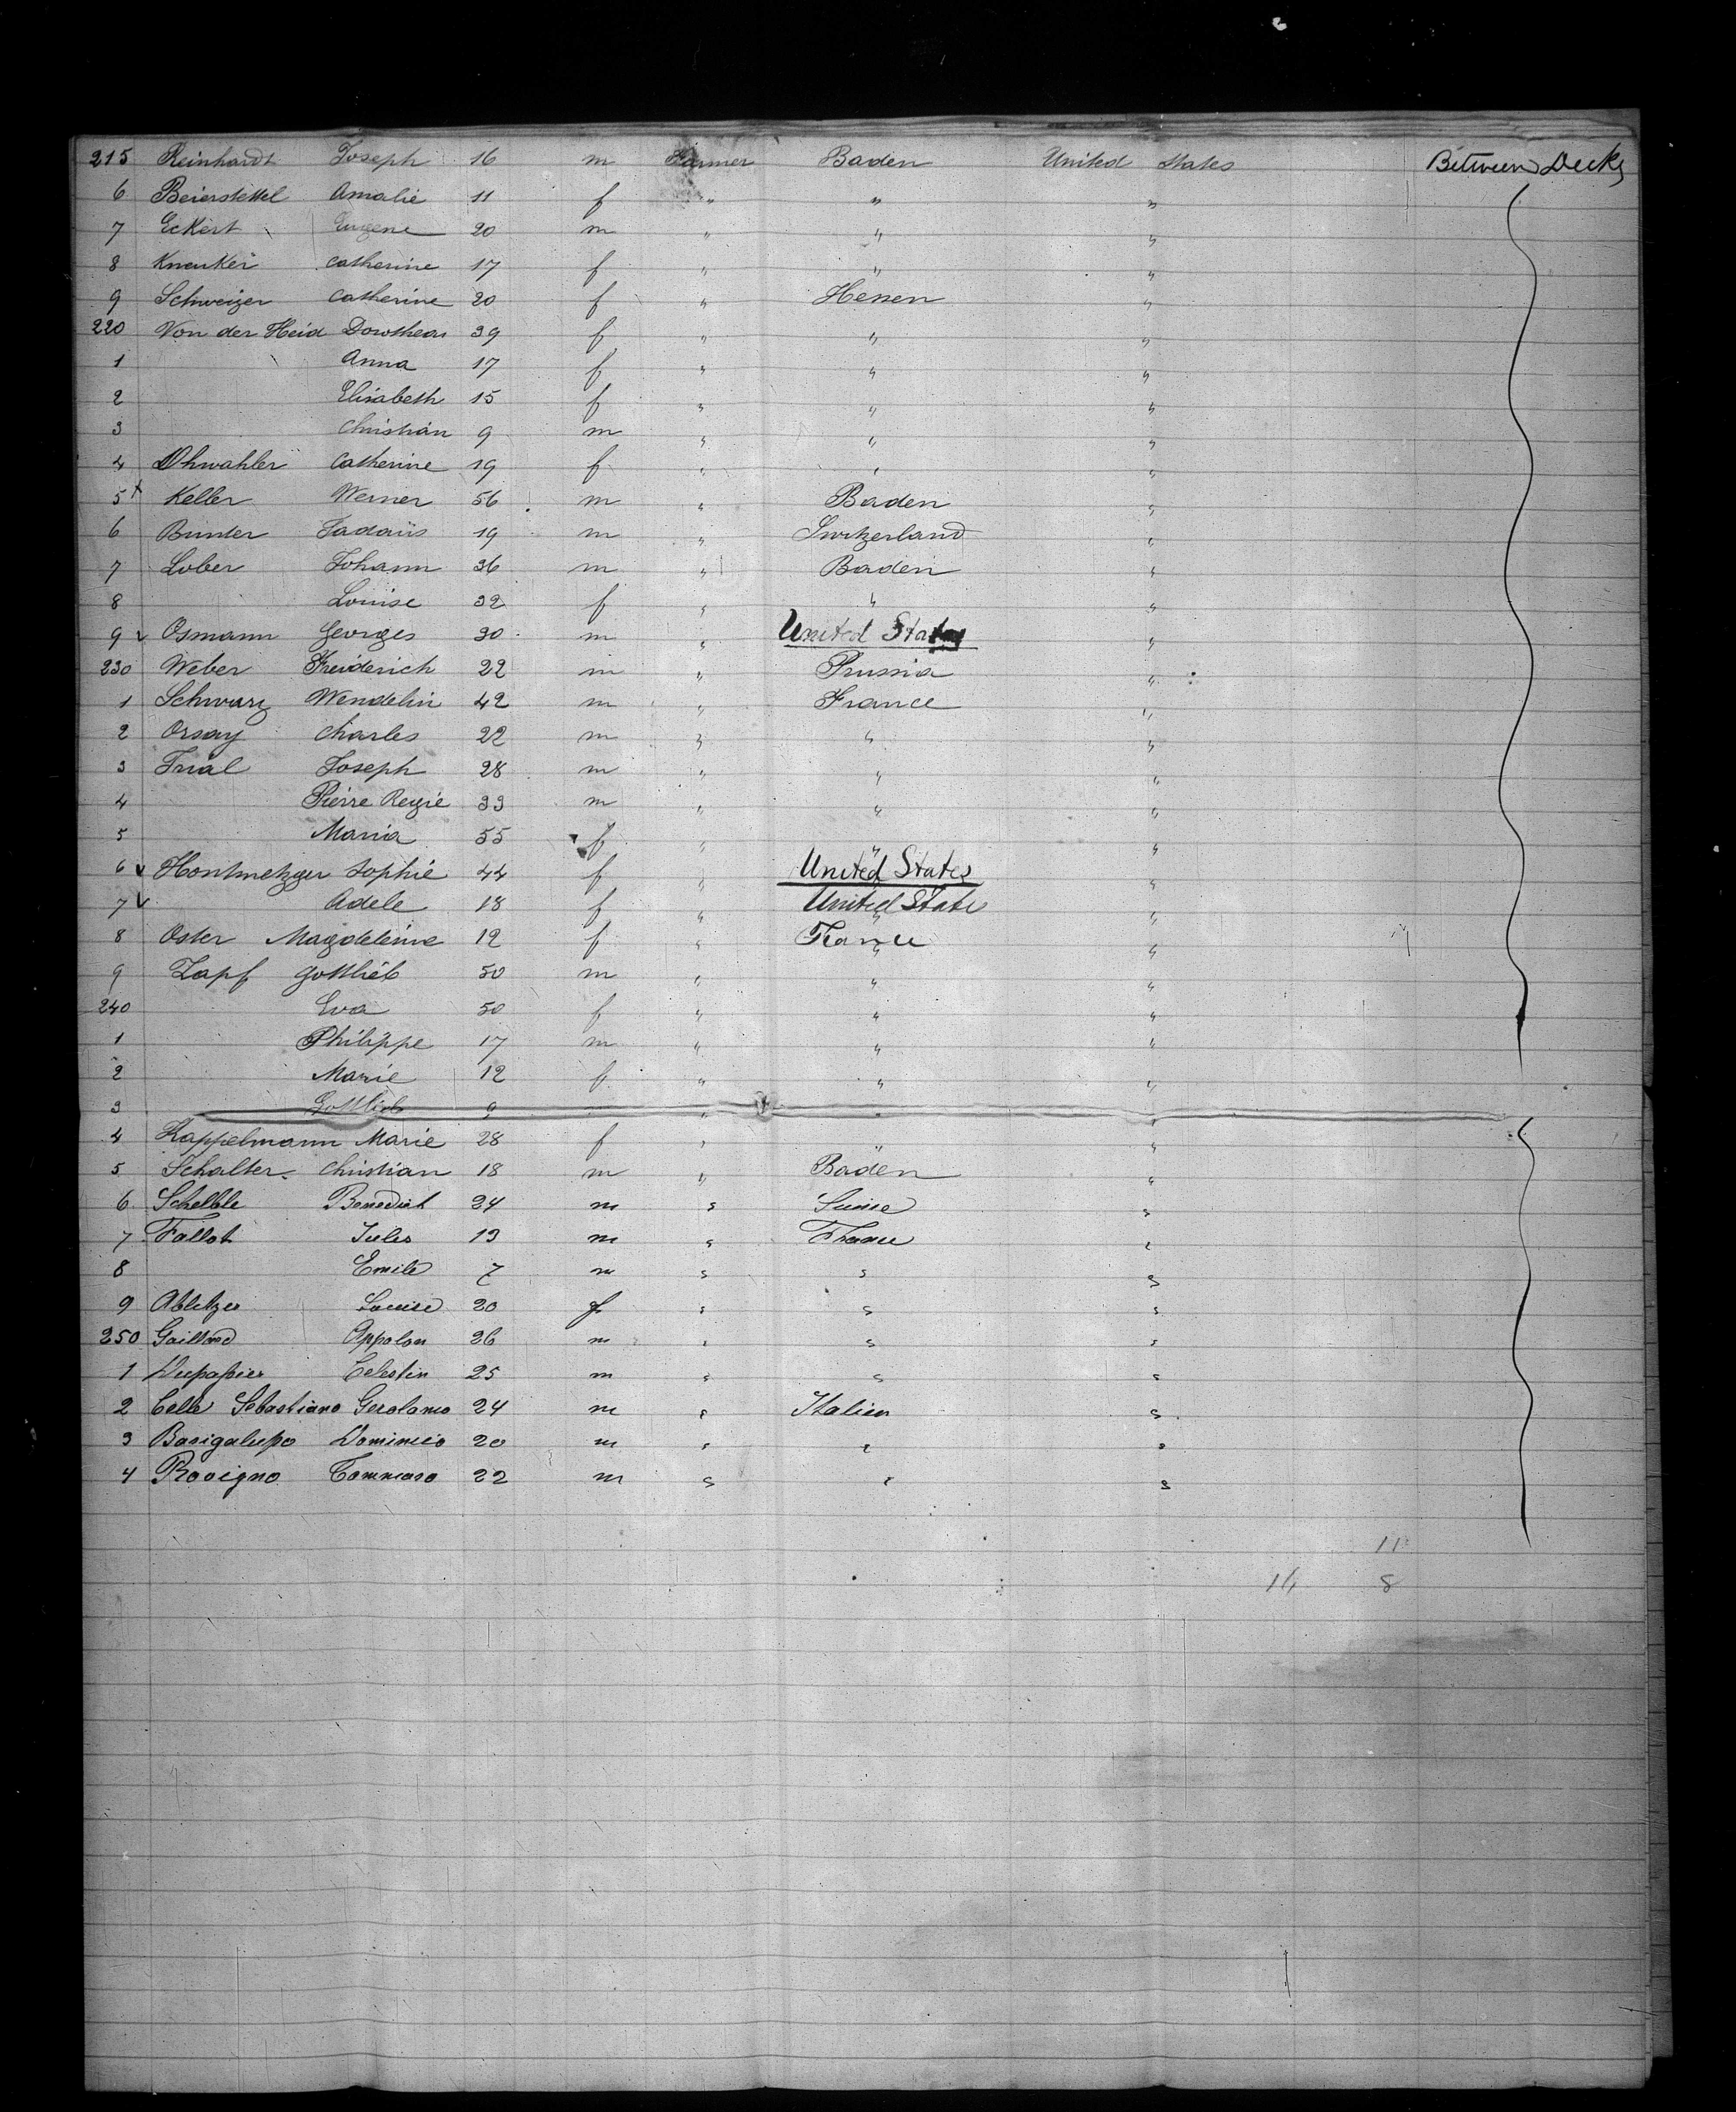 215 Reinhardt Joseph 16 m Farmer Baden United States Between Decks
6 Beierstettel Amalie 11 f " " "
7 Eckert Eugene 20 m " " "
8 Kneuker Catherine 17 f " " "
9 Schweizer Catherine 20 f " Hessen "
220 Von der Heid Dorothea 39 f " " "
1 Anna 17 f " " "
2 Elisabeth 15 f " " "
3 Christian 9 m " " "
4 Ohwahler Catherine 19 f " " "
5 x Keller Werner 56 m " Baden "
6 Binder Tadaüs 19 m " Switzerland "
7 Lober Johann 36 m " Baden "
8 Louise 32 f " " "
9 Osmann Georges 30 m " United States "
230 Weber Freiderich 22 m " Prussia "
1 Schwarz Wendelin 42 m " France "
2 Orsay Charles 22 m " " "
3 Trial Joseph 28 m " " "
4 Pierre 33 m " " "
5 Maria 55 f " " "
6 Sophie 44 f " United States "
7 Adele 18 f " United State "
8 Oster Magdeleine 12 f " France "
9 Zapf Gottlieb 50 m " " "
240 Eva 50 f " " "
1 Philippe 17 m " " "
2 Marie 12 f " " "
3 Gottlieb 9 " " "
4 Kappelmann Marie 28 f " " "
5 Schalter Christian 18 m " Baden "
6 Schelble Benedict 24 m " Suisse "
7 Fallot Jules 13 m " France "
8 Emile 7 m " " "
9 Ablitzer Louise 20 f " " "
250 Gaillard Appolon 26 m " " "
1 Celestin 25 m " " "
2 Celle Sebastiano Gerolamo 24 m " Italien "
3 Basigalupo Dominico 20 m " " "
4 Rovigno Tommaso 22 m " " "
11
14 8